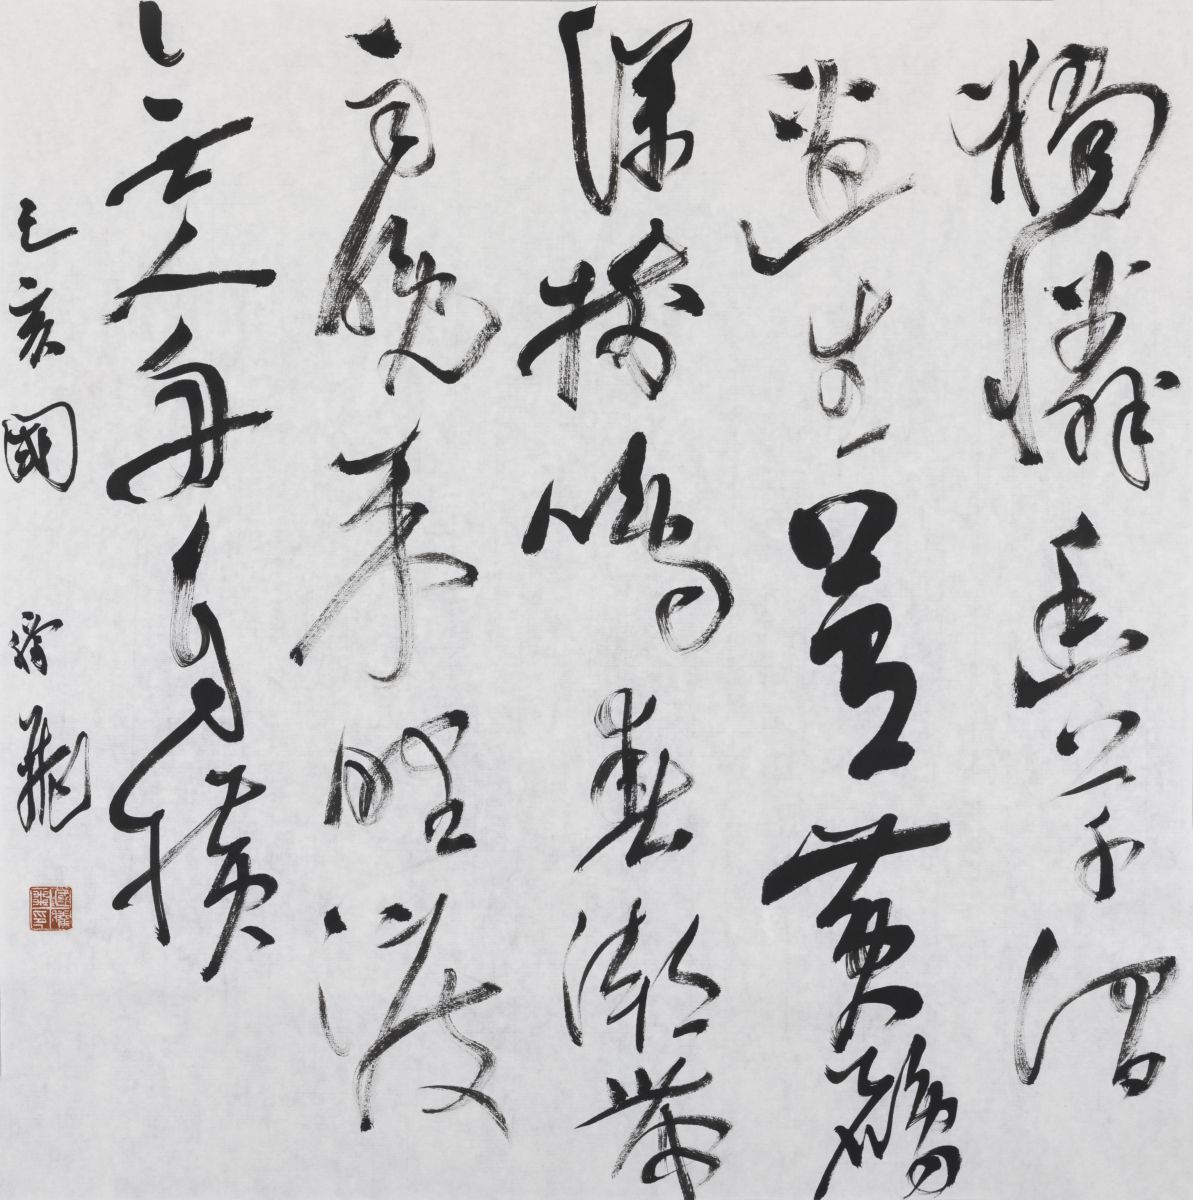 獨憐幽草澗
邊生上有黃鸝
深樹鳴春潮帶
雨晚来野渡
無人舟自橫
己亥國
飛